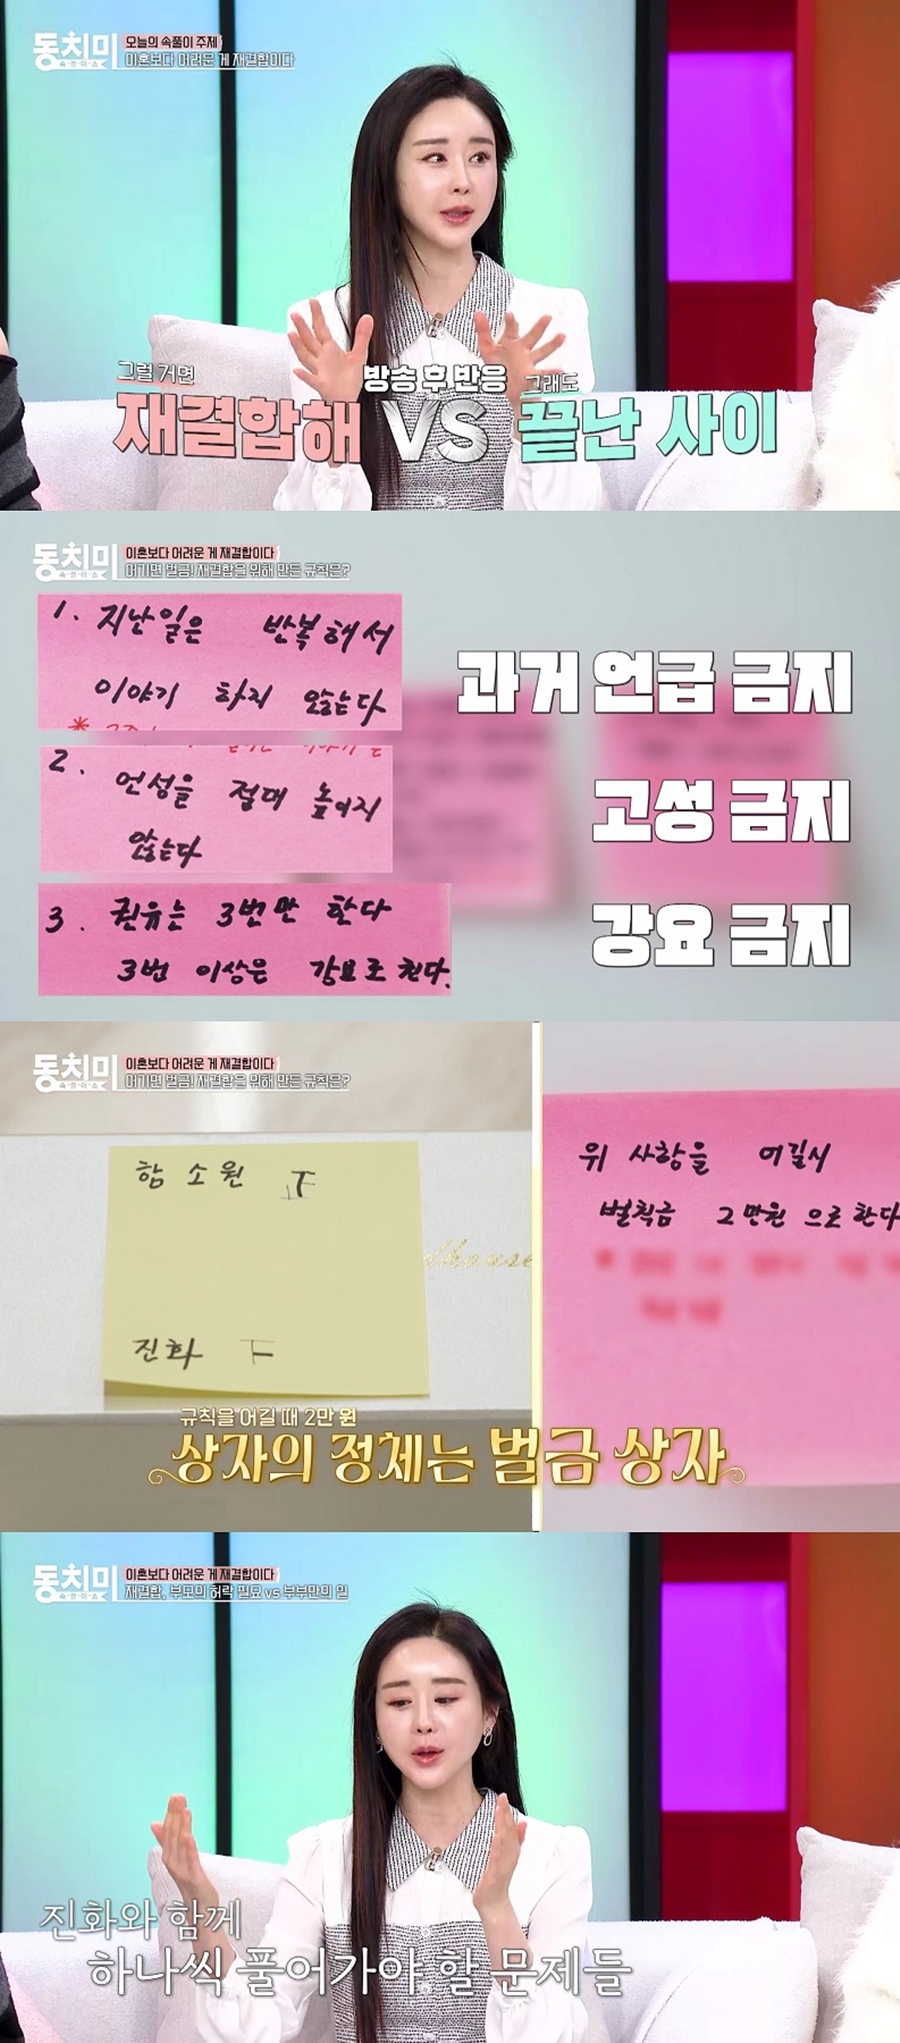 동치미
속풀이쇼
오늘의 속풀이 주제
이혼보다 어려운 게 재결합이다
그럴 거면
재결합해
방송 후 반응
VS
그래도
끝난 사이
동치미
속풀이쇼
이혼보다 어려운 게 재결합이다
어기면 벌금! 재결합을 위해 만든 규칙은?
1. 지난일은 반복해서
이야기 하지 않는다
과거 언급 금지
2. 언성을 절대 높이지
않는다
고성 금지
3. 권유는 3번만 한다
3번 이상은 강요로 친다.
강요 금지
동치미
속풀이쇼
이혼보다 어려운 게 재결합이다
어기면 벌금! 재결합을 위해 만든 규칙은?
함소원
진화
위 사항을 어길시
벌칙금 2만원으로 한다
규칙을 어길 때 2만 원
상자의 정체는 벌금 상자
동치미
속풀이쇼
이혼보다 어려운 게 재결합이다
재결합, 부모의 허락 필요 vs 부부만의 일
진화와 함께
하나씩 풀어가야 할 문제들